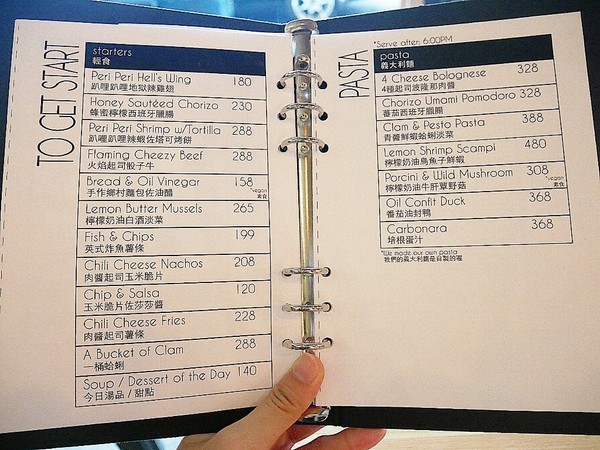 TO GET START
starters
輕食
Peri Peri Hell's Wing 180
趴哩趴哩地獄辣雞翅
Honey Sautéed Chorizo 230
蜂蜜檸檬西班牙臘腸
Peri Peri Shrimp w/Tortilla 288
趴哩趴哩辣蝦佐塔可烤餅
Flaming Cheezy Beef 288
火焰起司骰子牛
Bread & Oil Vinegar 158
手作鄉村麵包佐油醋
*vegan
素食
Lemon Butter Mussels 265
檸檬奶油白酒淡菜
Fish & Chips 199
英式炸魚薯條
Chili Cheese Nachos 208
肉醬起司玉米脆片
Chip & Salsa 120
玉米脆片佐莎莎醬
Chili Cheese Fries 228
肉醬起司薯條
A Bucket of Clam 288
一桶蛤蜊
Soup / Dessert of the Day 140
今日湯品 / 甜點
PASTA
*Serve after: 6:00PM
pasta
義大利麵
4 Cheese Bolognese 328
4種起司波隆那肉醬
Chorizo Umami Pomodoro 328
蕃茄西班牙臘腸
Clam & Pesto Pasta 388
青醬鮮蝦蛤蜊淡菜
Lemon Shrimp Scampi 480
檸檬奶油烏魚子鮮蝦
Porcini & Wild Mushroom 308
檸檬奶油牛肝蕈野菇
*vegan
素食
Oil Confit Duck 368
番茄油封鴨
Carbonara 368
培根蛋汁
*We made our own pasta
我們的義大利麵是自製的喔